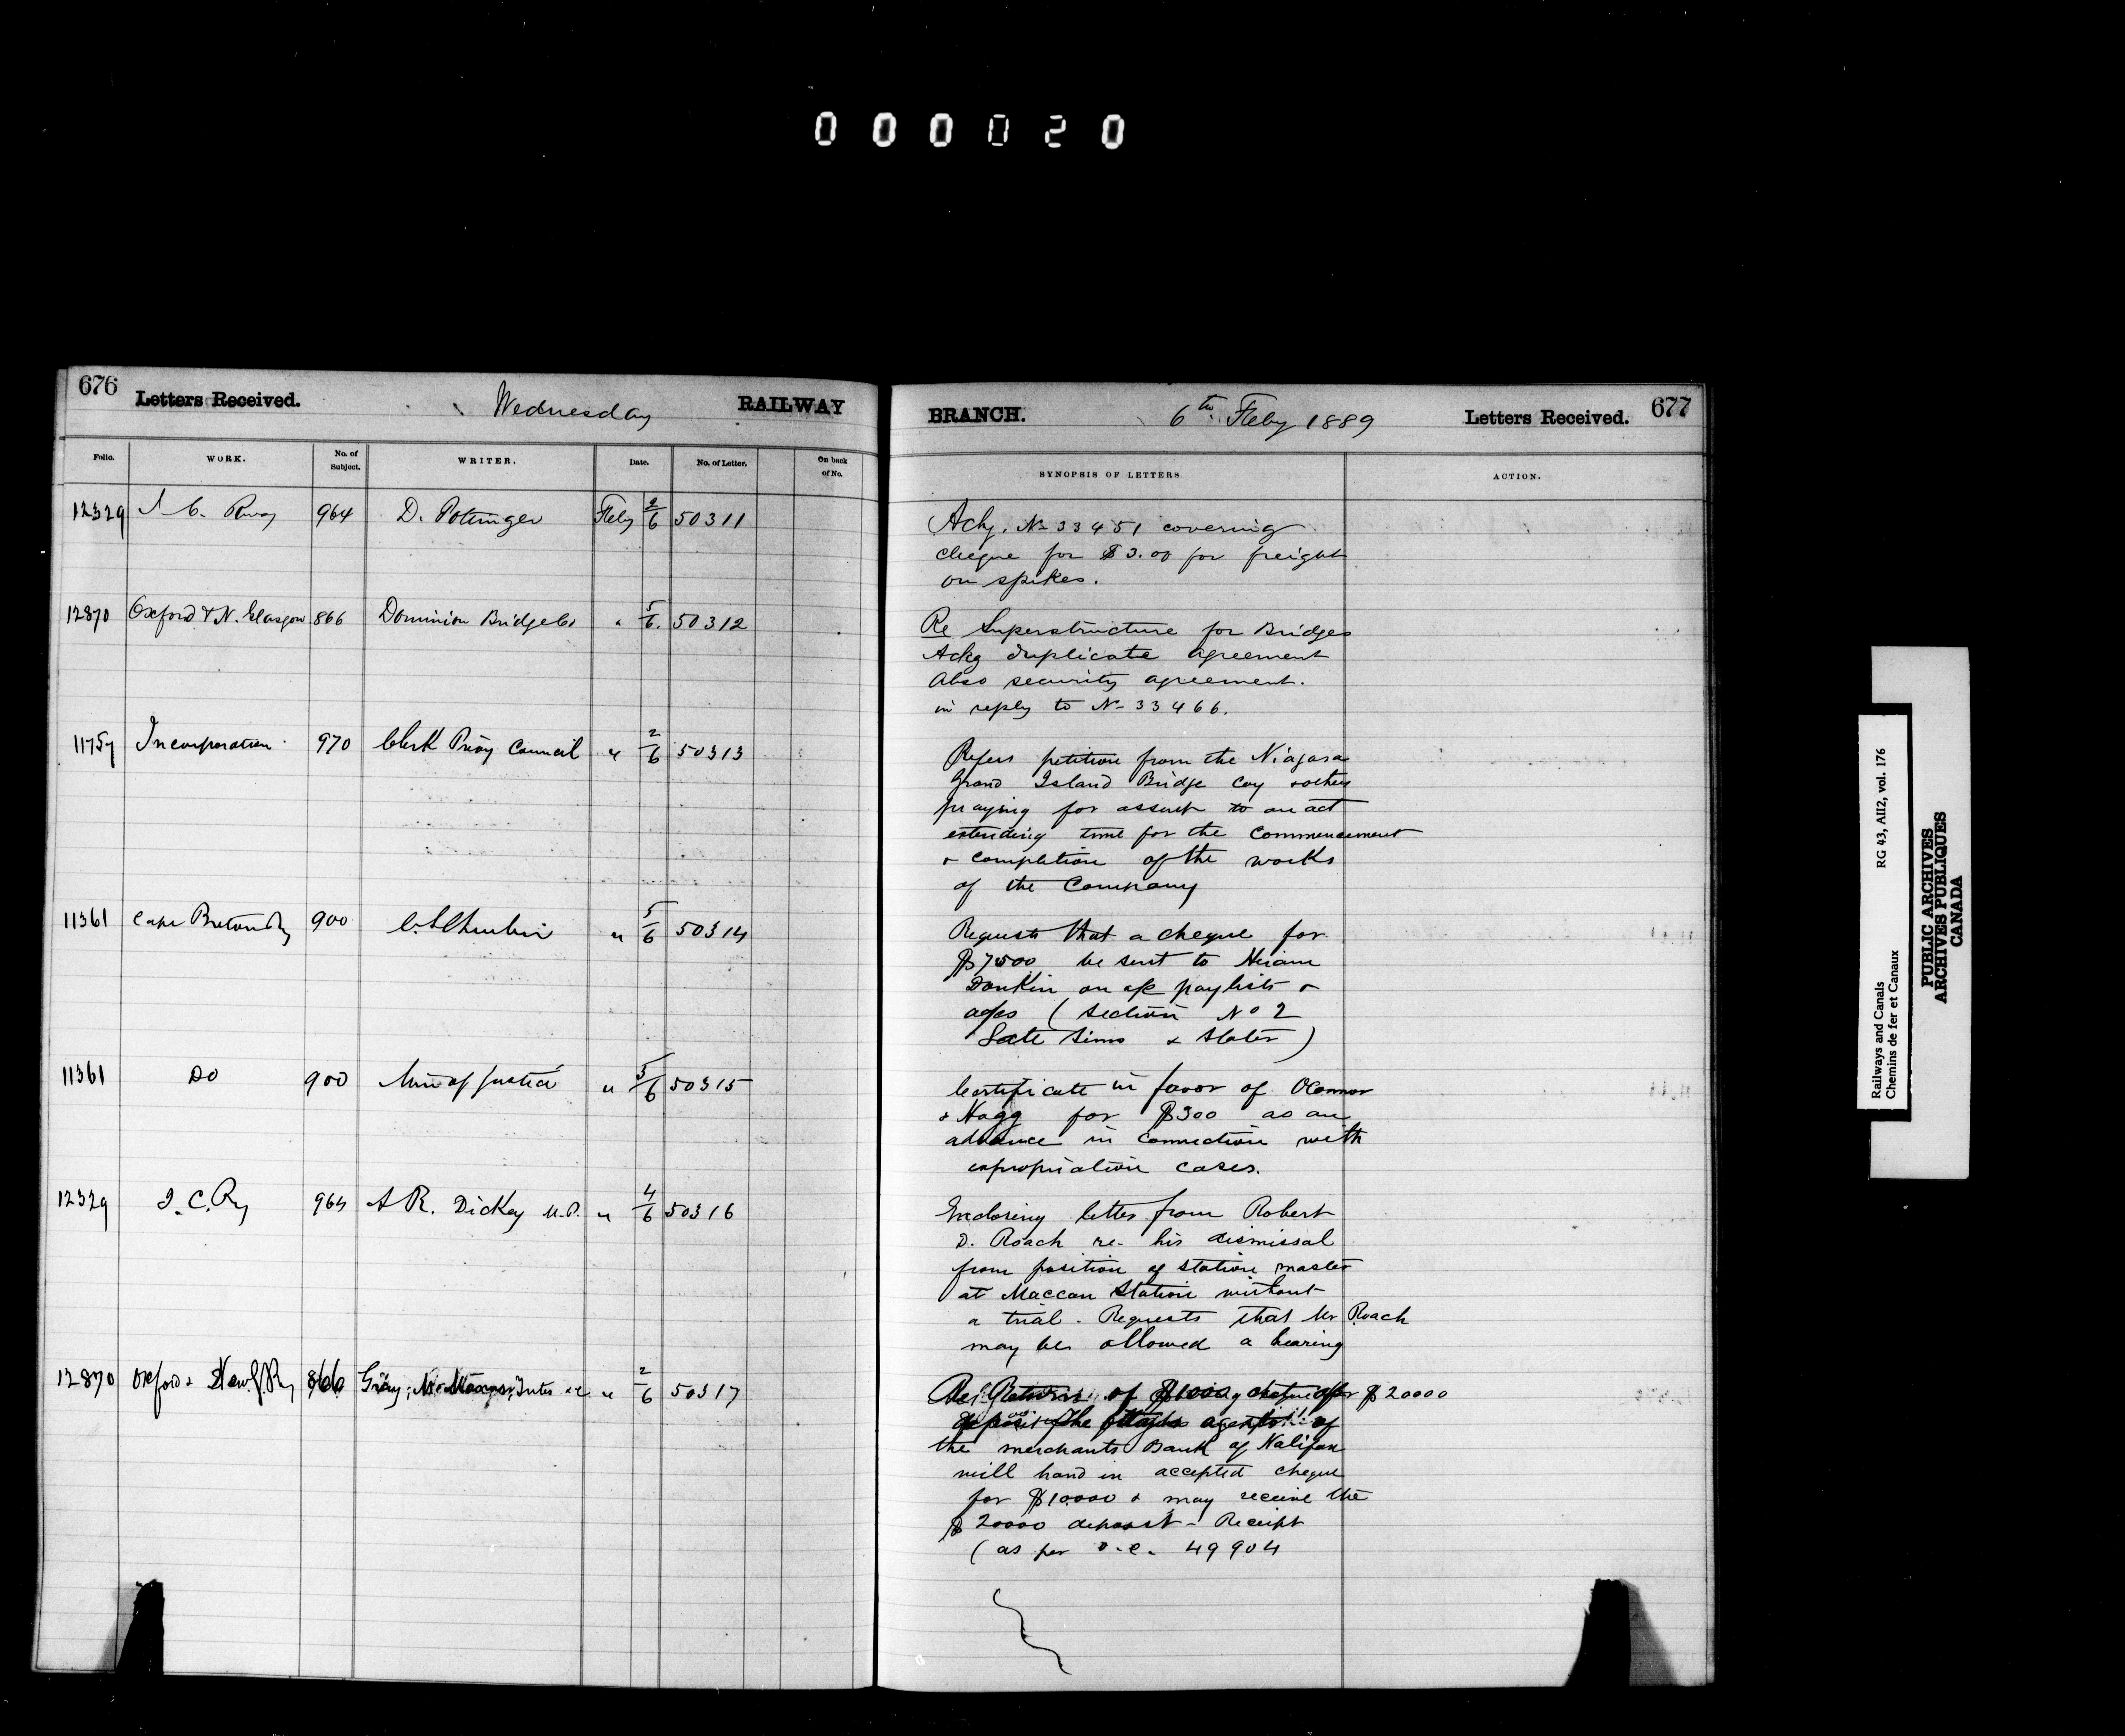 000020
676 Letters Received. Wednesday RAILWAY
BRANCH. 6th Feby 1889 Letters Received. 677
Folio. WORK. No. of Subject. WRITER. Date. No. of Letter. On back of No.
SYNOPSIS OF LETTERS ACTION.
12329 I. C. Rway 964 D. Pottinger Feby 2/6 50311
Ackg. No 33451 covering
cheque for $3.00 for freight
on spikes.
12870 Oxford & N. Glasgow 866 Dominion Bridge Co " 5/6. 50312
Re Superstructure for Bridges
Ackg duplicate agreement
Also security agreement.
in reply to No 33466.
11757 Incorporation 970 Clerk Privy Council " 2/6 50313
Refers petition from the Niagara
Grand Island Bridge Coy & others
praying for assent to an act
extending time for the commencement
& completion of the works
of the Company
11361 Cape Breton Ry 900 " 5/6 50314
Requests that a cheque for
$7500 be sent to Hiram
Donkin on a/c paylists &
a/cs (Section No 2
Late Sims & Slater)
11361 Do 900 Min of Justice " 5/6 50315
Certificate in favor of OConnor
& Hogg for $300 as an
advance in connection with
expropriation cases.
12329 I. C. Ry 964 A R. Dickey M.P. " 4/6 50316
Enclosing letter from Robert
D. Roach re- his dismissal
from position of station master
at Maccan Station without
a trial. Requests that Mr Roach
may be allowed a hearing
12870 Oxford & New G. Ry 866 " 2/6 50317
of $20000
deposit The agent of
the merchants Bank of Halifax
will hand in accepted cheque
for $10000 & may receive the
$20000 deposit - Receipt
(as per O.C. 49904
Railways and Canals RG 43, AII2, vol. 176
Chemins de fer et Canaux
PUBLIC ARCHIVES
ARCHIVES PUBLIQUES
CANADA